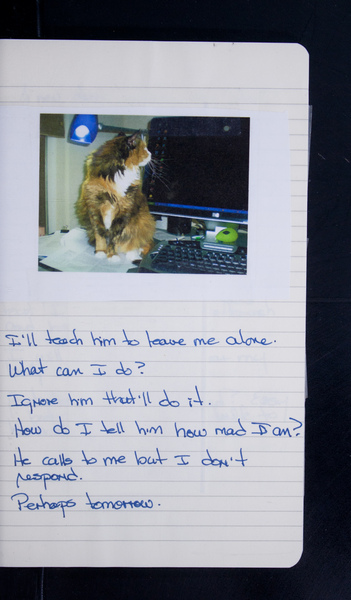 I'll teach him to leave me alone.
What can I do?
Ignore him that'll do it.
How do I tell him how mad I am?
He calls to me but I don't
respond.
Perhaps tomorrow.